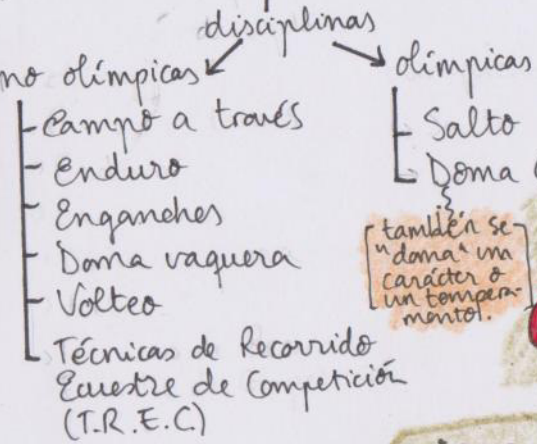 disciplinas
no olímpicas
- Campo a través
- Enduro
- Enganches
- Doma vaquera
- Volteo
- Técnicas de Recorrido
Ecuestre de Competición
(T.R.E.C.)
olímpicas
- Salto
- Doma
también se
"doma" un
carácter o
un tempera-
mento.